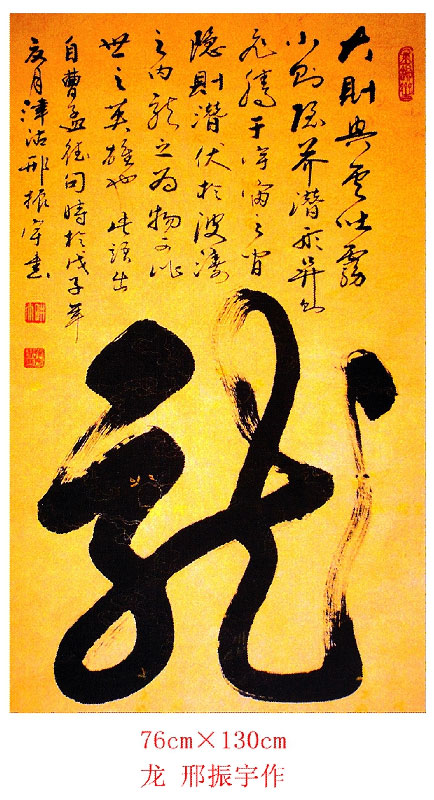 大則興云吐霧
小則隐芥潛形昇則
飛騰于宇宙之間
隐則潛伏於波濤
之内龍之為物可比
世之英雄也此語出
自曹孟德句時於戊子年
夏月津沽邢振宇書
龍
76cm×130cm
龙 邢振宇作